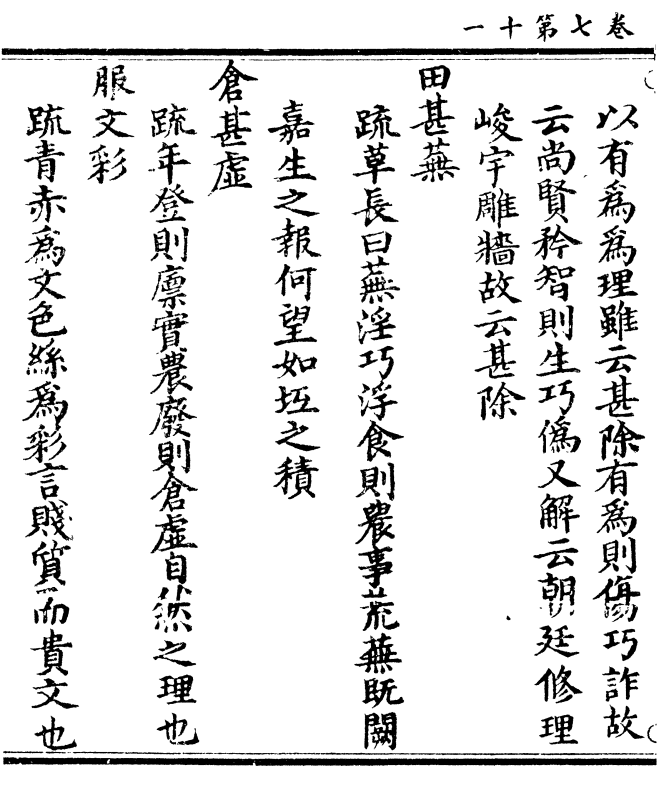 卷七第十一
以有爲爲理雖云甚除有爲則傷巧詐故
云尚賢矜智則生巧僞又解云朝廷修理
峻宇雕牆故云甚除
田甚蕪
疏草長曰蕪淫巧浮食則農事荒蕪既闕
嘉生之報何望如坻之積
倉甚虛
疏年登則廪實農廢則倉虛自然之理也
服文彩
疏青赤爲文色絲爲彩言賤質而貴文也